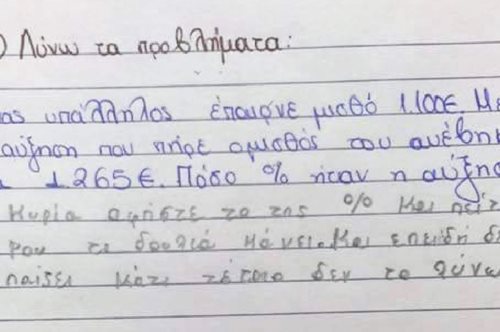 ) Λύνω τα προβλήματα:
ας υπάλληλος έπαιρνε μισθό 1.100€. Με
αύξηση που πήρε ο μισθός του ανέβη
1265€. Πόσο % ήταν η αύξησ
Κυρία αφήστε το της % και πείτ
μου τι δουλιά κάνει. Και επειδή δ
παίζει κάτι τέτοιο δεν το λύνω